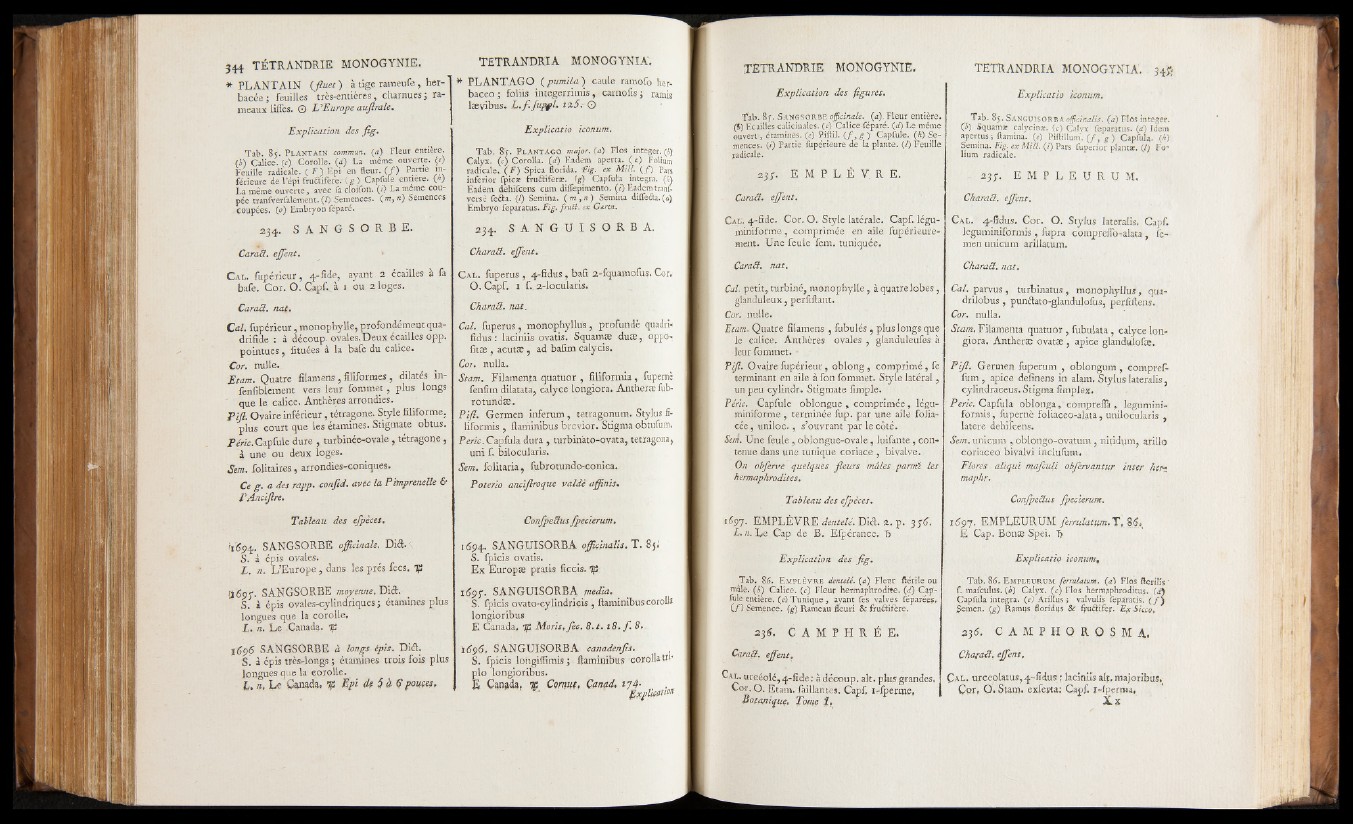 344 TÉTRANDRIE MONOGYNIE.
* PLANTAIN (fluet) à tige rameuse, her-
bacée ; feuilles très-entières, charnues ; ra-
meaux lisses. ☉ L'Europe australe.
Explication des fig.
Tab. 85. PLANTAIN commun. (a) Fleur entière.
(b) Calice. (c) Corolle. (d) La même ouverte. (e)
Feuille radicale. (F) Epi en fleur. (f) Partie in-
férieure de l'épi fructifère. (g) Capsule entière. (h)
La même ouverte, avec sa cloison. (i) La même cou-
pée transversalement. (l) Semences. (m, n) Semences
coupées. (o) Embryon séparé.
234. SANGSORBE.
Caract. essent.
CAL. supérieur, 4-fide, ayant 2 écailles à sa
base. Cor. O. Caps. à 1 ou 2 loges.
Caract. nat.
Cal. supérieur, monophylle, profondément qua-
drifide : à découp. ovales. Deux écailles opp.
pointues, situées à la base du calice.
Cor. nulle.
Etam. Quatre filamens, filiformes, dilatés in-
sensiblement vers leur sommet, plus longs
que le calice. Anthères arrondies.
Pist. Ovaire inférieur, tétragone. Style filiforme,
plus court que les étamines. Stigmate obtus.
Péric. Capsule dure, turbinée-ovale, tétragone,
à une ou deux loges.
Sem. solitaires, arrondies-coniques.
Ce g. a des rapp. consid. avec la Pimprenelle &
l'Ancistre.
Tableau des espèces.
1694. SANGSORBE officinale. Dict.
S. à épis ovales.
L. n. L'Europe, dans les prés secs. ♃
1695. SANGSORBE moyenne. Dict.
S. à épis ovales-cylindriques ; étamines plus
longues que la corolle.
L. n. Le Canada. ♃
1696 SANGSORBE à longs épis. Dict.
S. à épis très-longs ; étamines trois fois plus
longues que la corolle.
L. n. Le Canada. ♃ Epi de 5 à 6 pouces.
TETRANDRIA MONOGYNIA.
* PLANTAGO (pumila) caule ramoso her-
baceo ; foliis integerrimis, carnosis ; ramis
lævibus. L. f. suppl. 125. ☉
Explicatio iconum.
Tab. 85. PLANTAGO major. (a) Flos integer. (b)
Calyx. (c) Corolla. (d) Eadem aperta. (e) Folium
radicale. (F) Spica florida. Fig. ex Mill. (f) Pars
inferior spicæ fructiferæ. (g) Capsula integra. (h)
Eadem dehiscens cum dissepimento. (i) Eadem trans-
versè secta. (l) Semina. (m, n) Semina dissecta. (o)
Embryo separatus. Fig. fruct. ex Gærtn.
234. SANGUISORBA.
Charact. essent.
CAL. superus, 4-fidus, basi 2-squamosus. Cor.
O. Caps. 1 s. 2-locularis.
Charact. nat.
Cal. superus, monophyllus, profundè quadri-
fidus : laciniis ovatis. Squamæ duæ, oppo-
sitæ, acutæ, ad basim calycis.
Cor. nulla.
Stam. Filamenta quatuor, filiformia, supernè
sensim dilatata, calyce longiora. Antheræ sub-
rotundæ.
Pist. Germen inferum, tetragonum. Stylus fi-
liformis, staminibus brevior. Stigma obtusum.
Peric. Capsula dura, turbinato-ovata, tetragona,
uni s. bilocularis.
Sem. solitaria, subrotundo-conica.
Poterio ancistroque valdè affinis.
Conspectus specierum.
1694. SANGUISORBA officinalis. T. 85.
S. spicis ovatis.
Ex Europæ pratis siccis. ♃
1695. SANGUISORBA media.
S. spicis ovato-cylindricis, staminibus corolla
longioribus
E Canada. ♃ Moris. sec. 8. t. 18. f. 8.
1696. SANGUISORBA canadensis.
S. spicis longissimis ; staminibus corolla tri-
plo longioribus.
E Canada. ♃ Cornut. Canad. 174.
Explication
TETRANDRIE MONOGYNIE.
Explication des figures.
Tab. 85. SANGSORBE officinale. (a) Fleur entière.
(b) Ecailles calicinales. (c) Calice séparé. (d) Le même
ouvert, étamines. (e) Pistil. (f, g) Capsule. (h) Se-
mences. (i) Partie supérieure de la plante. (l) Feuille
radicale.
235. EMPLÈVRE.
Caract. essent.
CAL. 4-fide. Cor. O. Style latérale. Caps. légu-
miniforme, comprimée en aile supérieure-
ment. Une seule sem. tuniquée.
Caract. nat.
Cal. petit, turbiné, monophylle, à quatre lobes,
glanduleux, persistant.
Cor. nulle.
Etam. Quatre filamens, subulés, plus longs que
le calice. Anthères ovales, glanduleuses à
leur sommet.
Pist. Ovaire supérieur, oblong, comprimé, se
terminant en aile à son sommet. Style latéral,
un peu cylindr. Stigmate simple.
Péric. Capsule oblongue, comprimée, légu-
miniforme, terminée sup. par une aîle folia-
cée, uniloc., s'ouvrant par le côté.
Sem. Une seule, oblongue-ovale, luisante, con-
tenue dans une tunique coriace, bivalve.
On observe quelques fleurs mâles parmi les
hermaphrodites.
Tableau des espèces.
1697. EMPLÈVRE dentelé. Dict. 2. p. 356.
L. n. Le Cap de B. Espérance. ♄
Explication des fig.
Tab. 86. EMPLÈVRE dentelé. (a) Fleur stérile ou
mâle. (b) Calice. (c) Fleur hermaphrodite. (d) Cap-
sule entière. (e) Tunique, avant ses valves séparées.
(f) Semence. (g) Rameau fleuri & fructifère.
236. CAMPHRÉE.
Caract. essent.
CAL. urcéolé, 4-fide : à découp. alt. plus grandes.
Cor. O. Etam. saillantes. Caps. 1-sperme,
Botanique. Tome I.
TETRANDRIA MONOGYNIA. 345
Explicatio iconum.
Tab. 85. SANGUISORBA officinalis. (a) Flos integer.
(b) Squamæ calycinæ. (c) Calyx separatus. (d) Idem
apertus ; stamina. (e) Pistillum. (f, g) Capsula. (h)
Semina. Fig. ex Mill. (i) Pars superior plantæ. (l) Fo-
lium radicale.
235. EMPLEURUM.
Charact. essent.
CAL. 4-fidus. Cor. O. Stylus lateralis. Caps.
leguminiformis, supra compresso-alata, se-
men unicum arillatum.
Charact. nat.
Cal. parvus, turbinatus, monophyllus, qua-
drilobus, punctato-glandulosus, persistens.
Cor. nulla.
Stam. Filamenta quatuor, subulata, calyce lon-
giora. Antheræ ovatæ, apice glandulosæ.
Pist. Germen superum, oblongum, compres-
sum, apice desinens in alam. Stylus lateralis,
cylindraceus. Stigma simplex.
Peric. Capsula oblonga, compressa, legumini-
formis, supernè foliaceo-alata, unilocularis,
latere dehiscens.
Sem. unicum, oblongo-ovatum, nitidum, arillo
coriaceo bivalvi inclusum.
Flores aliqui masculi observantur inter her-
maphr.
Conspectus specierum.
1697. EMPLEURUM serrulatum. T. 86.
E Cap. Bonæ Spei. ♄
Explicatio iconum.
Tab. 86. EMPLEURUM serrulatum. (a) Flos sterilis
s. masculus. (b) Calyx. (c) Flos hermaphroditus. (d)
Capsula integra. (e) Arillus ; valvulis separatis. (f)
Semen. (g) Ramus floridus & fructifer. Ex Sicco.
236. CAMPHOROSMA.
Charact. essent.
CAL. urceolatus, 4-fidus : laciniis alt. majoribus.
Cor. O. Stam. exserta. Caps. 1-sperma.
X x